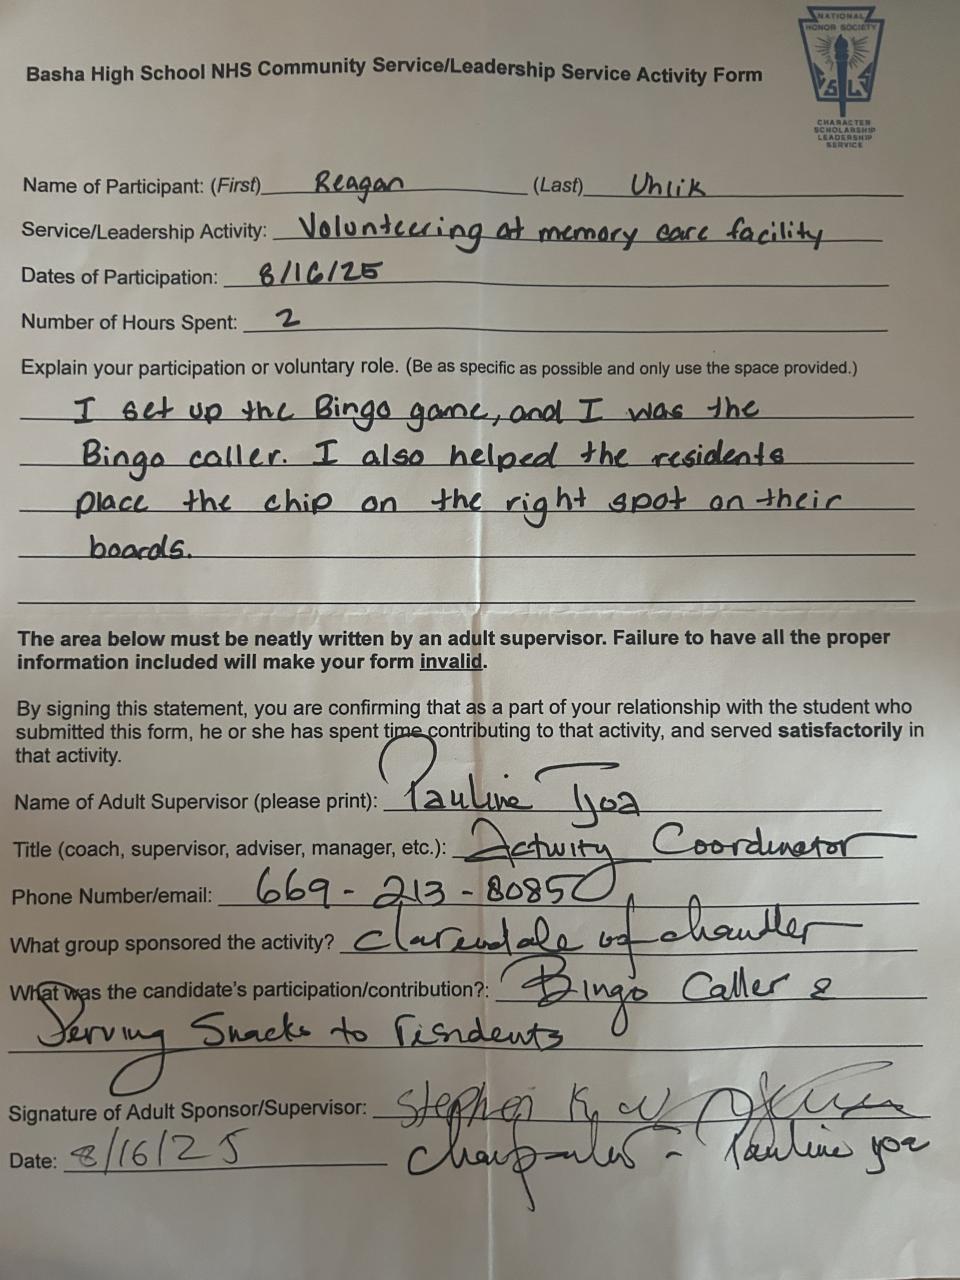 NATIONAL
HONOR SOCIETY
S L
CHARACTER
SCHOLARSHIP
LEADERSHIP
SERVICE
Basha High School NHS Community Service/Leadership Service Activity Form
Name of Participant: (First) Reagan (Last) Uhlik
Service/Leadership Activity: Volunteering at memory care facility
Dates of Participation: 8/16/25
Number of Hours Spent: 2
Explain your participation or voluntary role. (Be as specific as possible and only use the space provided.)
I set up the Bingo game, and I was the
Bingo caller. I also helped the residents
place the chip on the right spot on their
boards.
The area below must be neatly written by an adult supervisor. Failure to have all the proper
information included will make your form invalid.
By signing this statement, you are confirming that as a part of your relationship with the student who
submitted this form, he or she has spent time contributing to that activity, and served satisfactorily in
that activity.
Name of Adult Supervisor (please print): Pauline Tjoa
Title (coach, supervisor, adviser, manager, etc.): Activity Coordinator
Phone Number/email: 669-213-8085
What group sponsored the activity? Clarendale of Chandler
What was the candidate's participation/contribution?: Bingo Caller &
Serving Snacks to residents
Signature of Adult Sponsor/Supervisor: Stephen
Date: 8/16/25 Pauline